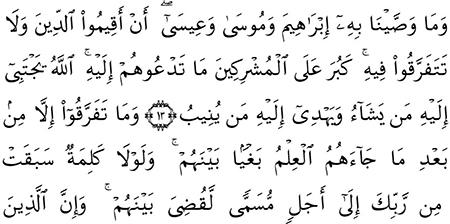 وَمَا وَصَّيْنَا بِهِۦٓ إِبْرَٰهِيمَ وَمُوسَىٰ وَعِيسَىٰٓ ۖ أَنْ أَقِيمُوا۟ ٱلدِّينَ وَلَا
تَتَفَرَّقُوا۟ فِيهِ ۚ كَبُرَ عَلَى ٱلْمُشْرِكِينَ مَا تَدْعُوهُمْ إِلَيْهِ ۚ ٱللَّهُ يَجْتَبِىٓ
إِلَيْهِ مَن يَشَآءُ وَيَهْدِىٓ إِلَيْهِ مَن يُنِيبُ ﴿١٣﴾ وَمَا تَفَرَّقُوٓا۟ إِلَّا مِنۢ
بَعْدِ مَا جَآءَهُمُ ٱلْعِلْمُ بَغْيًۢا بَيْنَهُمْ ۚ وَلَوْلَا كَلِمَةٌ سَبَقَتْ
مِن رَّبِّكَ إِلَىٰٓ أَجَلٍ مُّسَمًّى لَّقُضِىَ بَيْنَهُمْ ۚ وَإِنَّ ٱلَّذِينَ